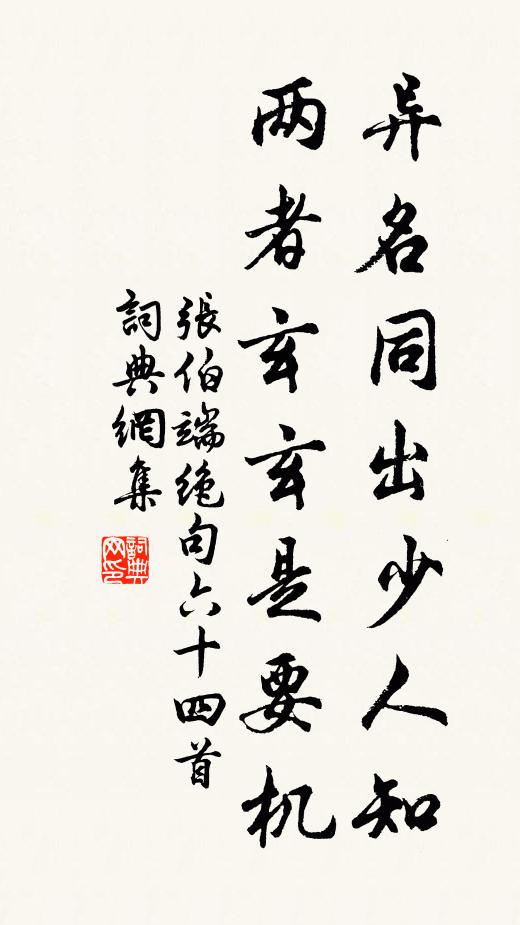 异名同出少人知
两者玄玄是要机
張伯端绝句六十四首
詞典網集
詞典网印